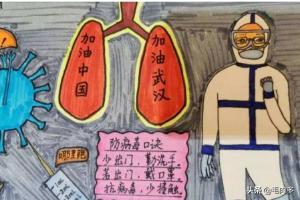 加油中国
加油武汉
哪里跑
防病毒口诀
少出门，勤洗手
若出门，戴口罩
抗病毒，少接触